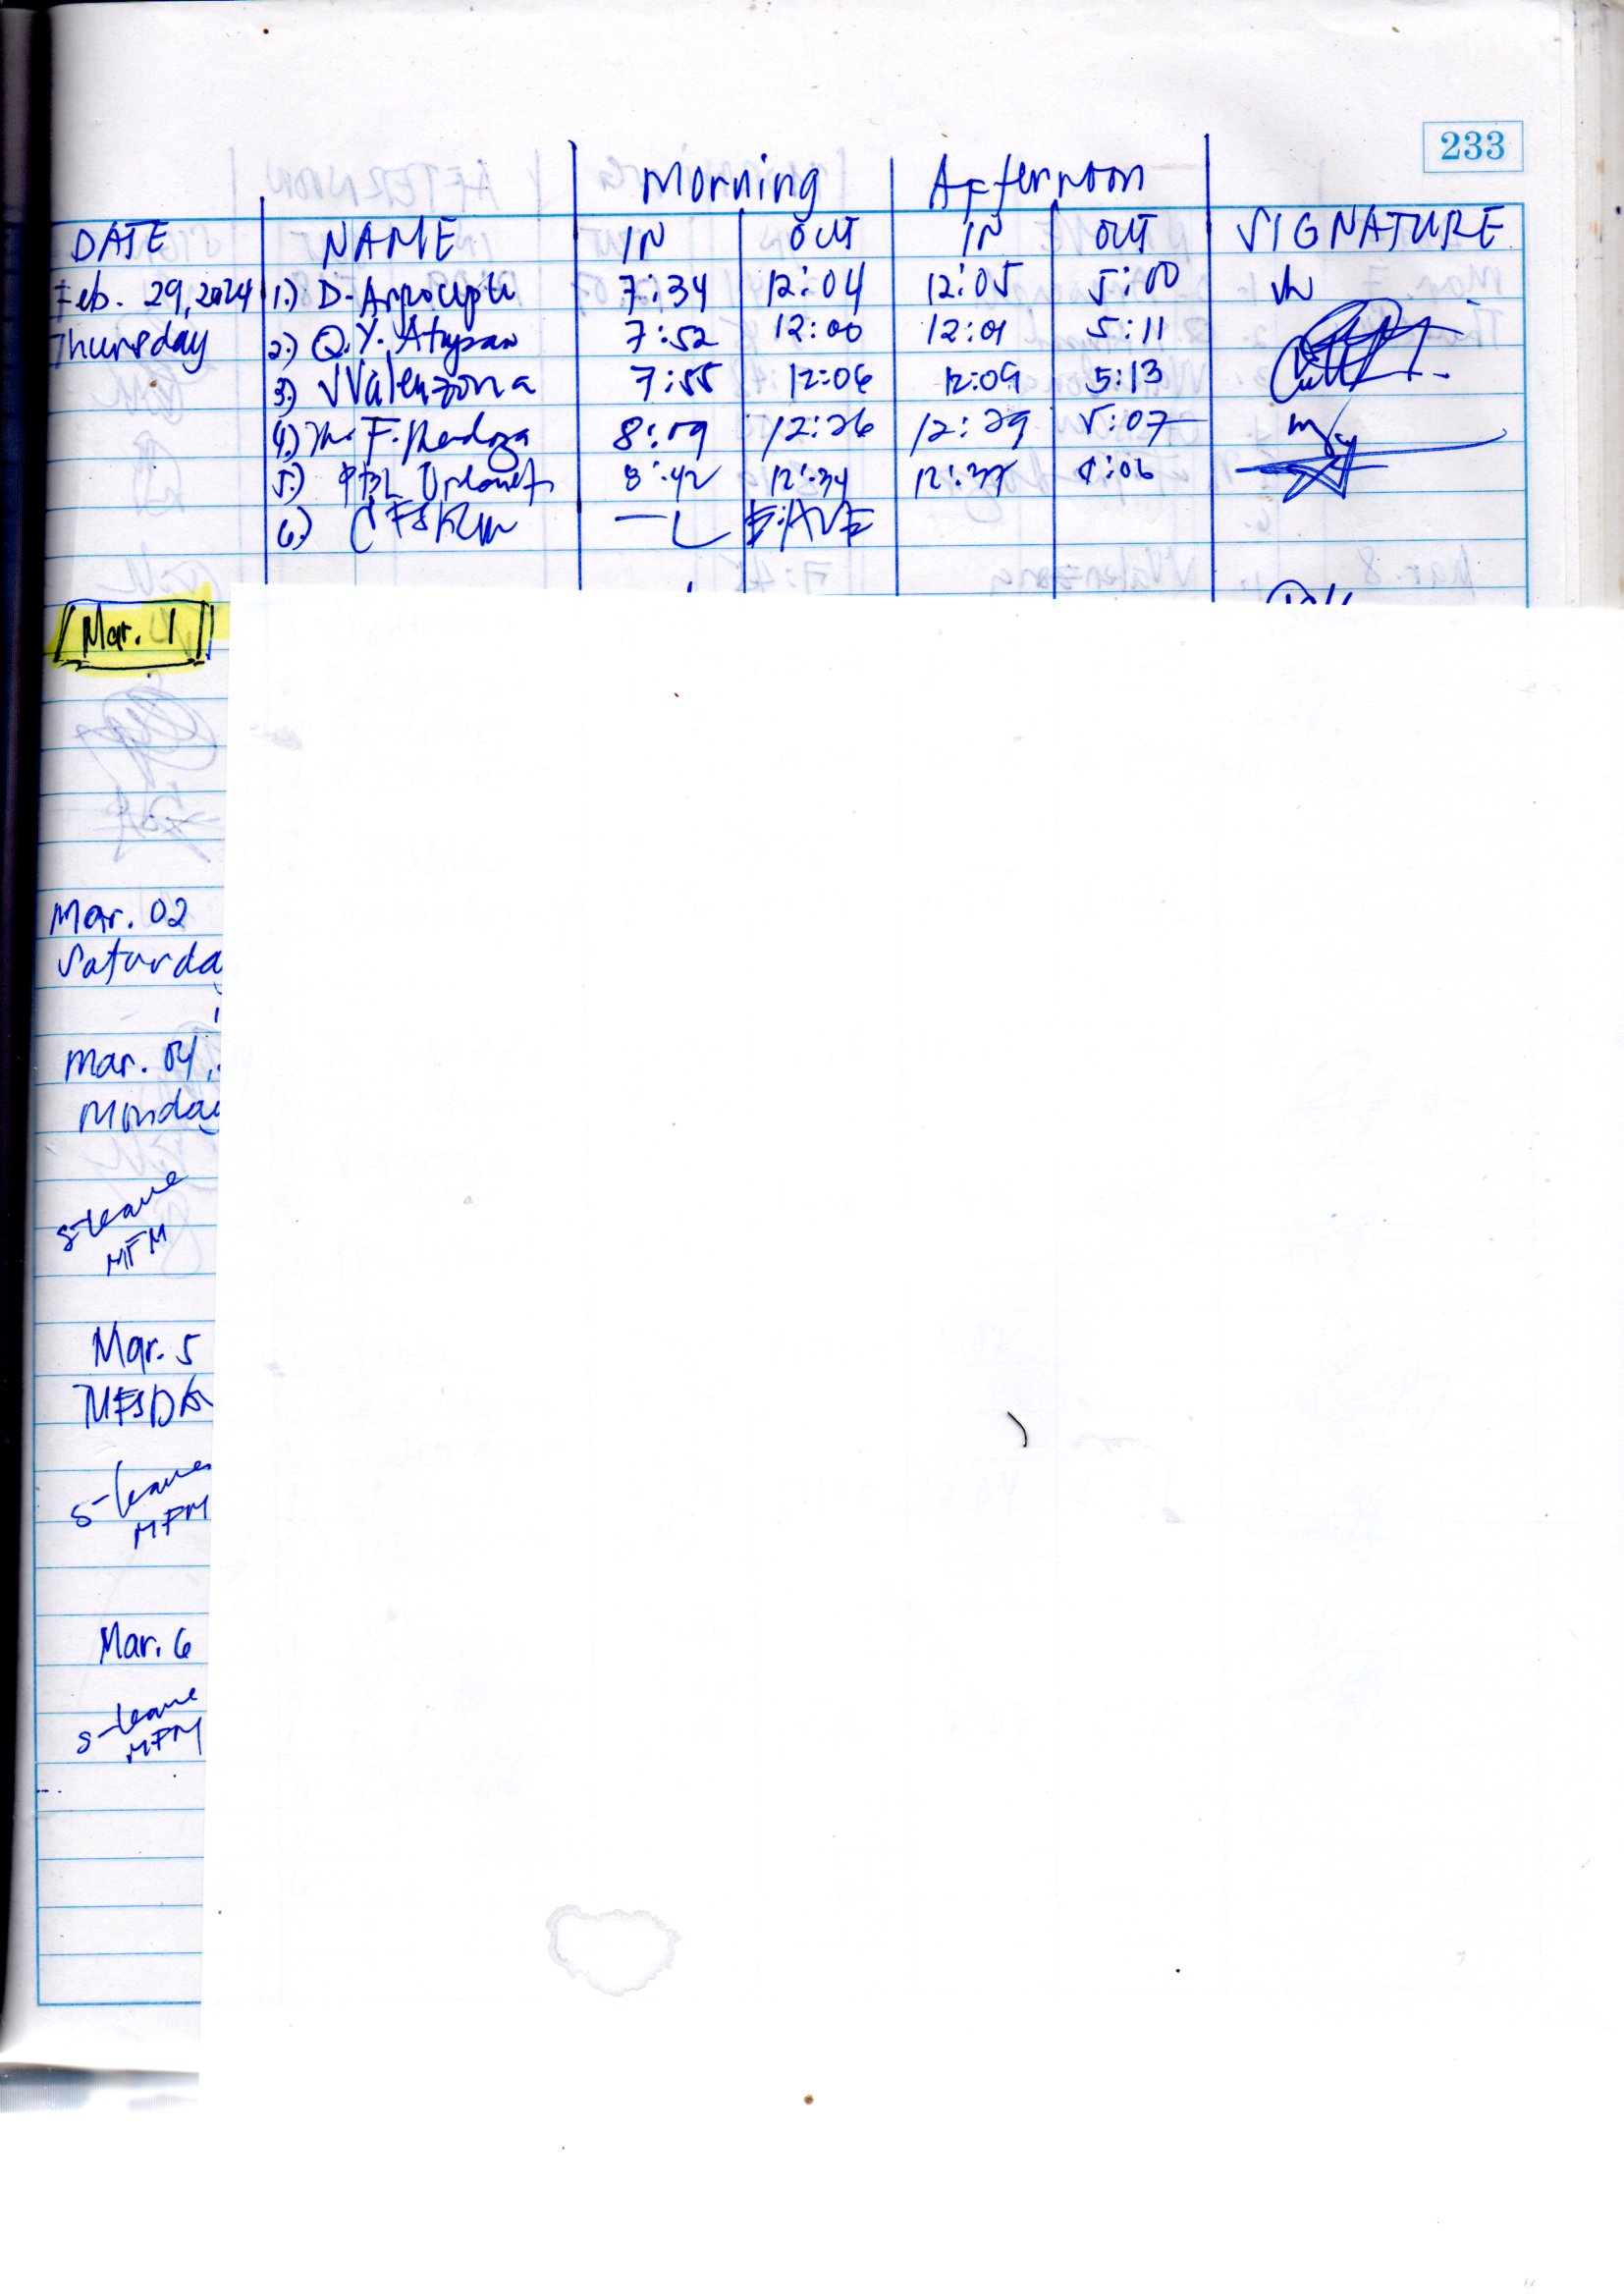 233
Morning Afternoon
DATE NAME IN OUT IN OUT SIGNATURE
Feb. 29, 2024 1.) D. 7:34 12:04 12:05 5:00
Thursday 2.) Q.Y. 7:52 12:00 12:01 5:11
3.) JValenzona 7:55 12:06 12:09 5:13
4.) F. Mendoza 8:09 12:26 12:29 5:07
5.) 8:42 12:34 12:37
6.) — LEAVE
Mar. 1
Mar. 02
Saturda
Mar. 04,
Monday
S-leave
MFM
Mar. 5
S-leave
MFM
Mar. 6
S-leave
MFM